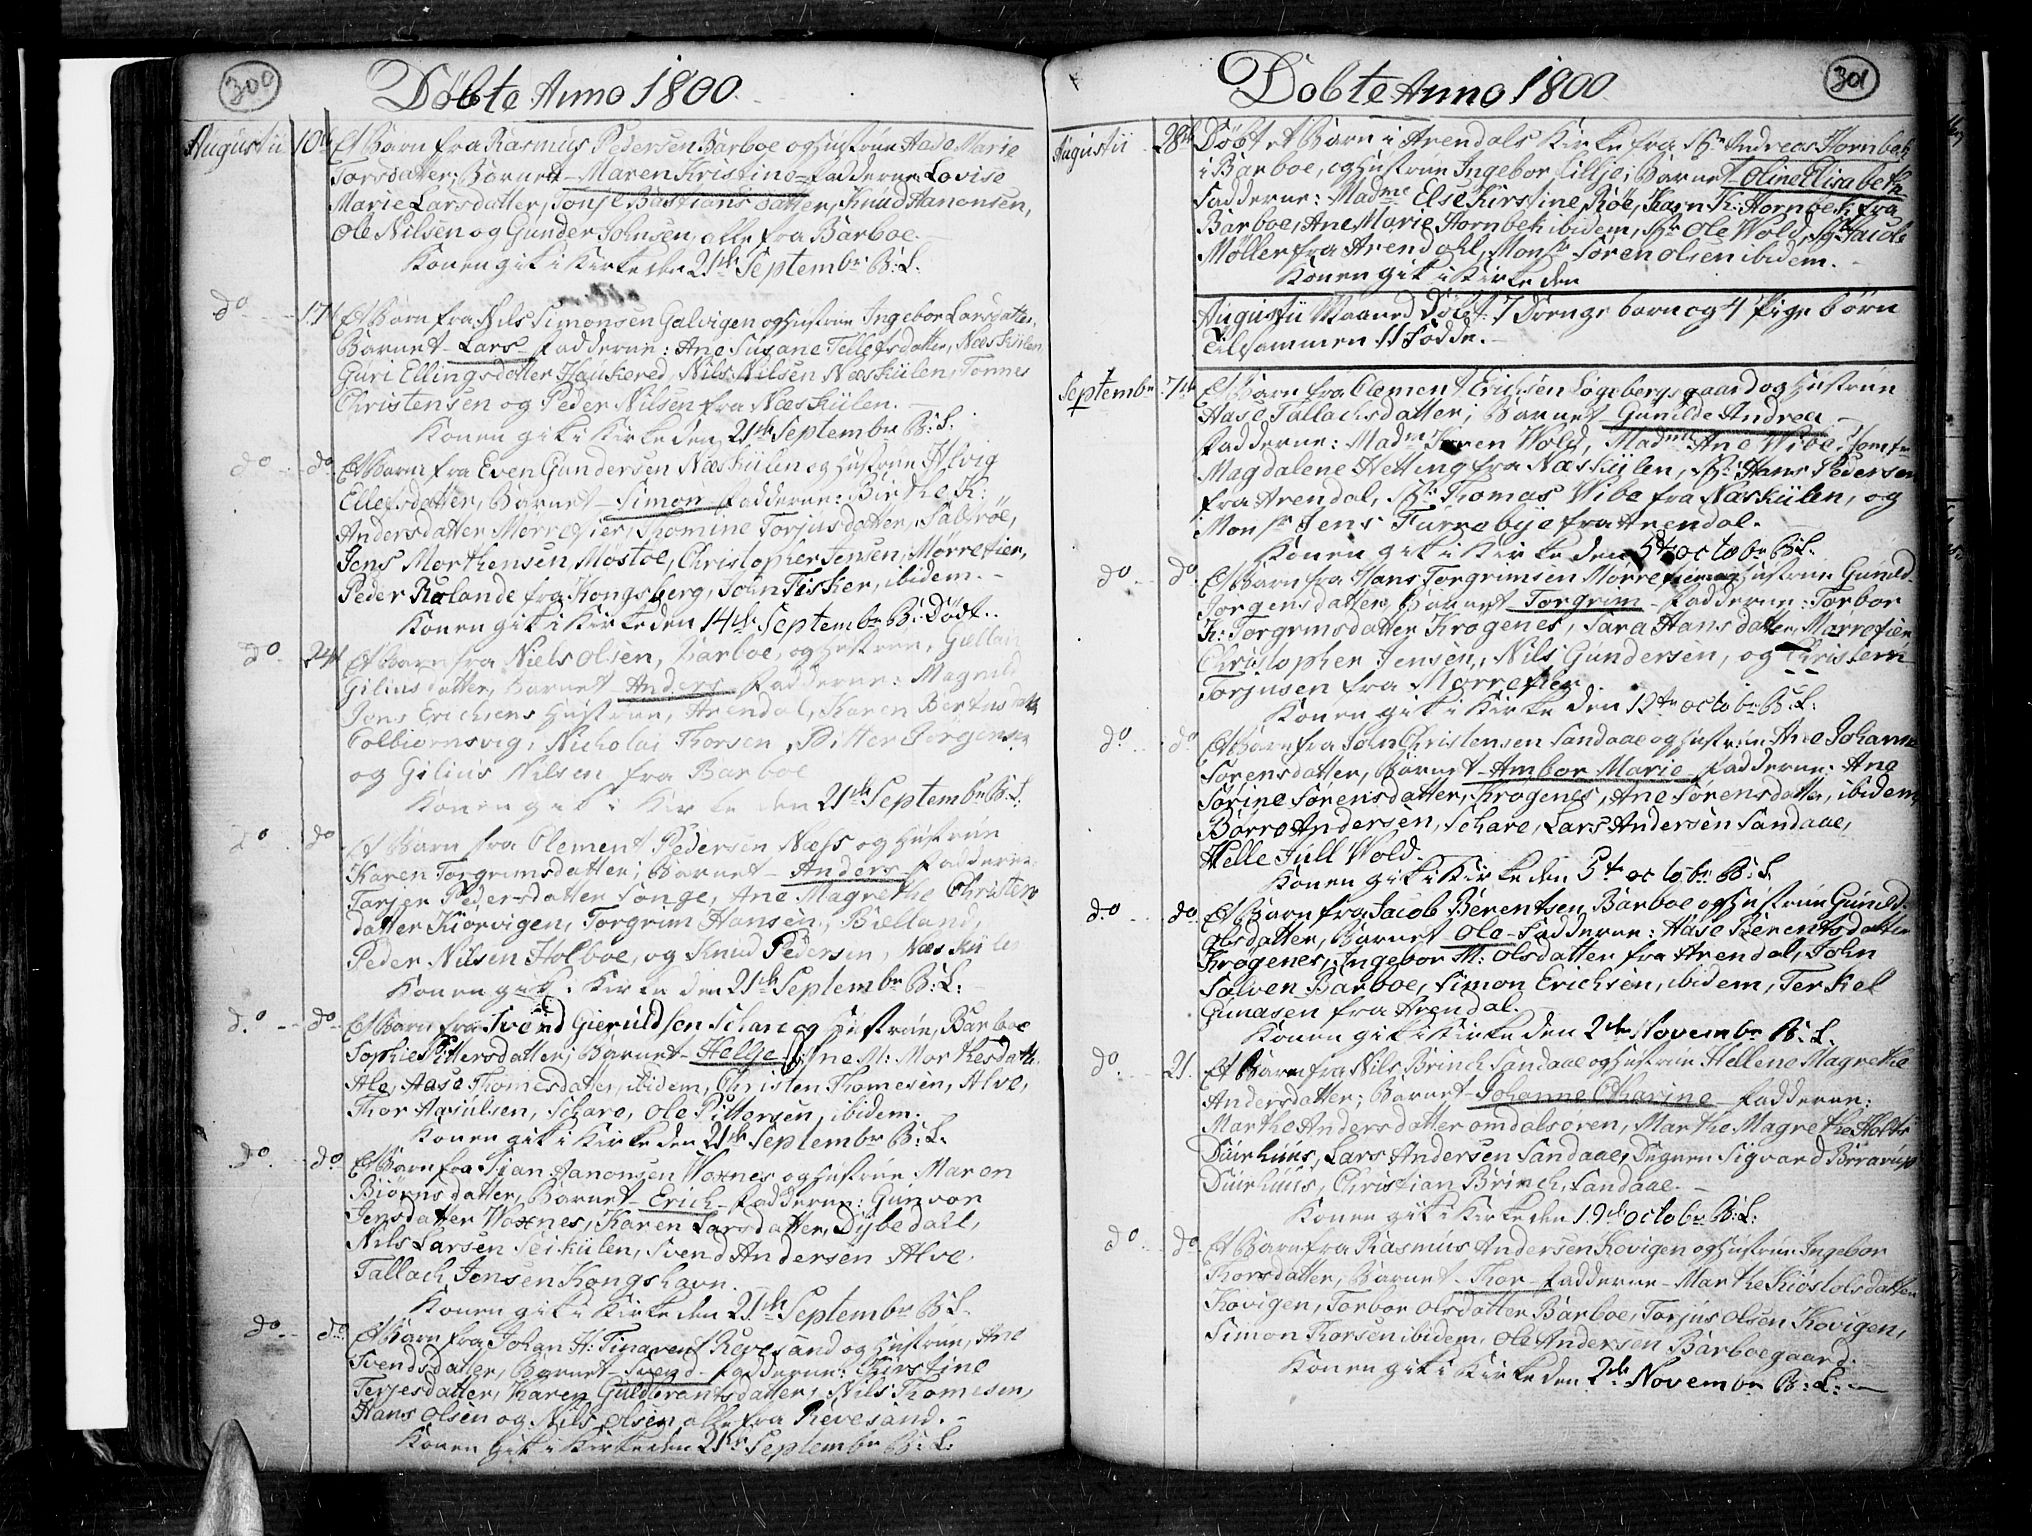 300
Døbte Anno 1800.
Augustii 10de Et Barn fra Rasmus Pedersen Barboe og Hustrue Aase Marie
Torsdatter; Barnet - Maren Kristine - Fadderne: Lovise
Marie Larsdatter, Tonje Bastians datter, Knud Aanonsen,
Ole Nilsen og Gunder Johnsen, alle fra Barboe.
Konen gik i Kirke den 21de Septembr B: L.
do 17de Et Barn fra Nils Simonsen Galvigen og Hustrue Ingebor Larsdatter,
Barnet - Lars - Fadderne: Ane Susane Tellefsdatter, Næskiilen,
Guri Ellingsdatter Haukered, Nils Nilsen Næskiilen, Tønnes
Christensen og Peder Nilsen fra Næskiilen.
Konen gik i Kirke den 21de Septembr B: L:
do do Et Barn fra Even Gundersen Næskiilen og Hustrue Helvig
Ellefsdatter, Barnet - Simon - Fadderne: Birthe K:
Andersdatter Morrefier, Thomine Torjusdatter, Sabroe,
Jens Morthensen Mostoe, Christopher Jensen, Mørrefier,
Peder Rolande fra Kongsberg, John Fisker, ibidem. -
Konen gik i Kirke den 14de Septembr B: Dødt.
do 24de Et Barn fra Niels Olsen, Barboe, og Hustrue,
Giliusdatter, Barnet - Anders - Fadderne: Magnild
Jens Erichsens Hustrue, Arendal, Karen Bertus datter
Colbiornsvig, Nicholai Thorsen, Pitter Jørgensen
og Gilius Nilsen fra Barboe
Konen gik i Kirke den 21de Septembr B: L:
do do Et Barn fra Clement Pedersen Næss og Hustrue
Karen Torgrimsdatter; Barnet - Anders - Fadderne:
Tarjer Pedersdatter Songe, Ane Magrethe Christens
datter Kiørvigen, Torgrim Hansen, Bieelland,
Peder Nilsen Holboe, og Knud Pedersen, Næskiilen
Konen gik i Kirke den 21de Septembr B: L: -
do do Et Barn fra Svend Gieruldsen Schare og Hustrue, Barboe
Sophie Pittersdatter; Barnet - Helje - Ane M: Morthesdatter
Ale, Aase Thomesdatter, ibidem, Christen Thomesen, Alve,
Thor Aasulsen, Schare, Ole Pittersen, ibidem.
Konen gik i Kirke den 21de Septembr B: L.
do do Et Barn fra Stian Aanonsen Woxnes og Hustrue Maren
Biørns datter, Barnet - Erich - Fadderne: Gunvor
Jensdatter Woxnes, Karen Larsdatter, Dybedall,
Nils Larsen Seikiilen, Svend Andersen Alve.
Tallach Jensen Kongshavn.
Konen gik i Kirke den 21de Septembr B: L.
do do Et Barn fra Johan H: Tinarent Revesand og Hustrue, Ane
Svendsdatter, Barnet - Svend - Fadderne: Kirstine
Terjesdatter, Karen Guldbrantsdatter, Nils Thomesen,
Hans Olsen og Nils Olsen alle fra Revesand. -
Konen gik i Kirke den 21de Septembr B: L:
301
Døbte Anno 1800.
Augustii 28de Døbt et Barn i Arendals Kirke fra Hr Andreas Hornbek
i Barboe, og Hustrue Ingebor Lillje; Barnet - Oline Elisabeth
Fadderne: Madme Else Kirstine Røe, Karn K: Hornbek fra
Barboe, Ane Marie Hornbek ibidem, Hr Ole Wold, Hr Jacob
Møller fra Arendahl, Monsr Søren Olsen ibidem.
Konen gik i Kirke den
Augustii Maaned Døbt 7 Drenge børn og 4 Pige børn
Tilsammen 11 Fødde.
Septembr 7de Et Barn fra Clement Erichsen Løgebergsgaard og Hustrue
Aase Tallachsdatter; Barnet - Gunilde Andrea -
Fadderne: Madm Karen Wold, Madm Ane Wibe, Jomfr
Magdalene Hetting fra Næskiilen, Hr: Hans Pedersen
fra Arendal, Hr: Thomas Wibe fra Næskiilen, og
Monsr Jens Furrebye fra Arendal.
Konen gik i Kirke den 5te Octobr B: L:
do do Et Barn fra Hans Torgrimsen Mørrefier og Hustrue Gunild
Jorgensdatter, Barnet - Torgrim - Fadderne: Torbor
K: Torgrmsdatter Krogenes, Sara Hans datter, Morrefier
Christopher Jensen, Nils Gundersen, og Christen
Torjusen fra Morrefier.
Konen gik i Kirke den 12te Octobr B: L:
do do Et Barn fra John Christensen Sandaae og Hustrue Ane Johanne
Sørensdatter, Barnet - Ambor Marie - Fadderne: Ane
Sørine Sørensdatter, Krogenes, Ane Sørensdatter, ibidem
Børre Andersen, Schare, Lars Andersen Sandaae,
Helle Jull Wold.
Konen gik i Kirke den 5te Octobr B: L.
do do Et Barn fra Jacob Berentsen Barboe og Hustrue Gunild
Olsdatter, Barnet - Ole - Fadderne: Aase Berentsdatter
Krogenes, Ingebor M: Olsdatter fra Arendal, John
Salven Barboe, Simon Erichsen, ibidem, Terkel
Gunasen fra Arendal.
Konen gik i Kirke den 2de Novembr B: L.
do 21. Et Barn fra Nils Brinch Sandaae og Hustrue Hellene Magrethe
Andersdatter; Barnet - Johanne Catharine - Fadderne:
Marthe Andersdatter Omdalsøren, Marthe Magrethe Holts
Duirhuus, Lars Andersen Sandaae, Sigvard Brrarup
Duirhuus, Christian Brinch, Sandaae. -
Konen gik i Kirke den 19de Octobr B: L:
do do Et Barn fra Rasmus Andersen Kovigen og Hustrue Ingebor
Thorsdatter, Barnet - Thor - Fadderne - Marthe Kiøstolsdatter
Kovigen, Torbor Olsdatter Barboe, Torjus Olsen Kovigen,
Simon Thorsen ibidem, Ole Andersen Barboegaard.
Konen gik i Kirke den 2de Novembr B: L: -